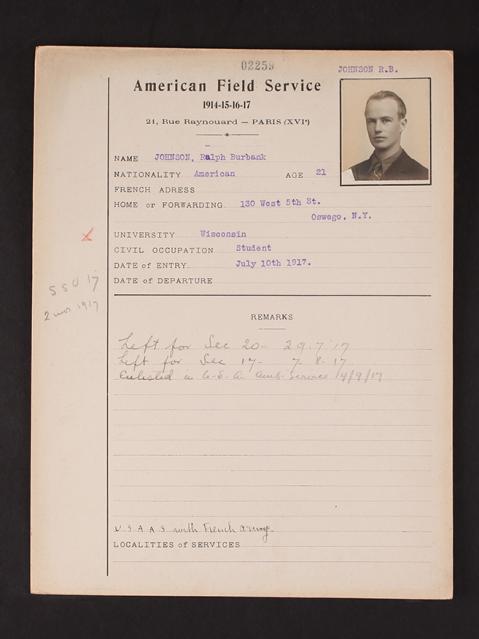 02259
JOHNSON R.B.
American Field Service
1914-15-16-17
21, Rue Raynouard — PARIS (XVIe)
NAME JOHNSON, Ralph Burbank
NATIONALITY American AGE 21
FRENCH ADRESS
HOME or FORWARDING 130 West 5th St.
Oswego, N.Y.
UNIVERSITY Wisconsin
CIVIL OCCUPATION Student
DATE of ENTRY July 10th 1917.
DATE of DEPARTURE
SSU 17
2 mos 1917
REMARKS
Left for Sec 20- 29.7.17
Left for Sec 17- 7.8.17
Enlisted in U.S.A. Amb. Service 14/9/17
U S A A S with French Army
LOCALITIES of SERVICES